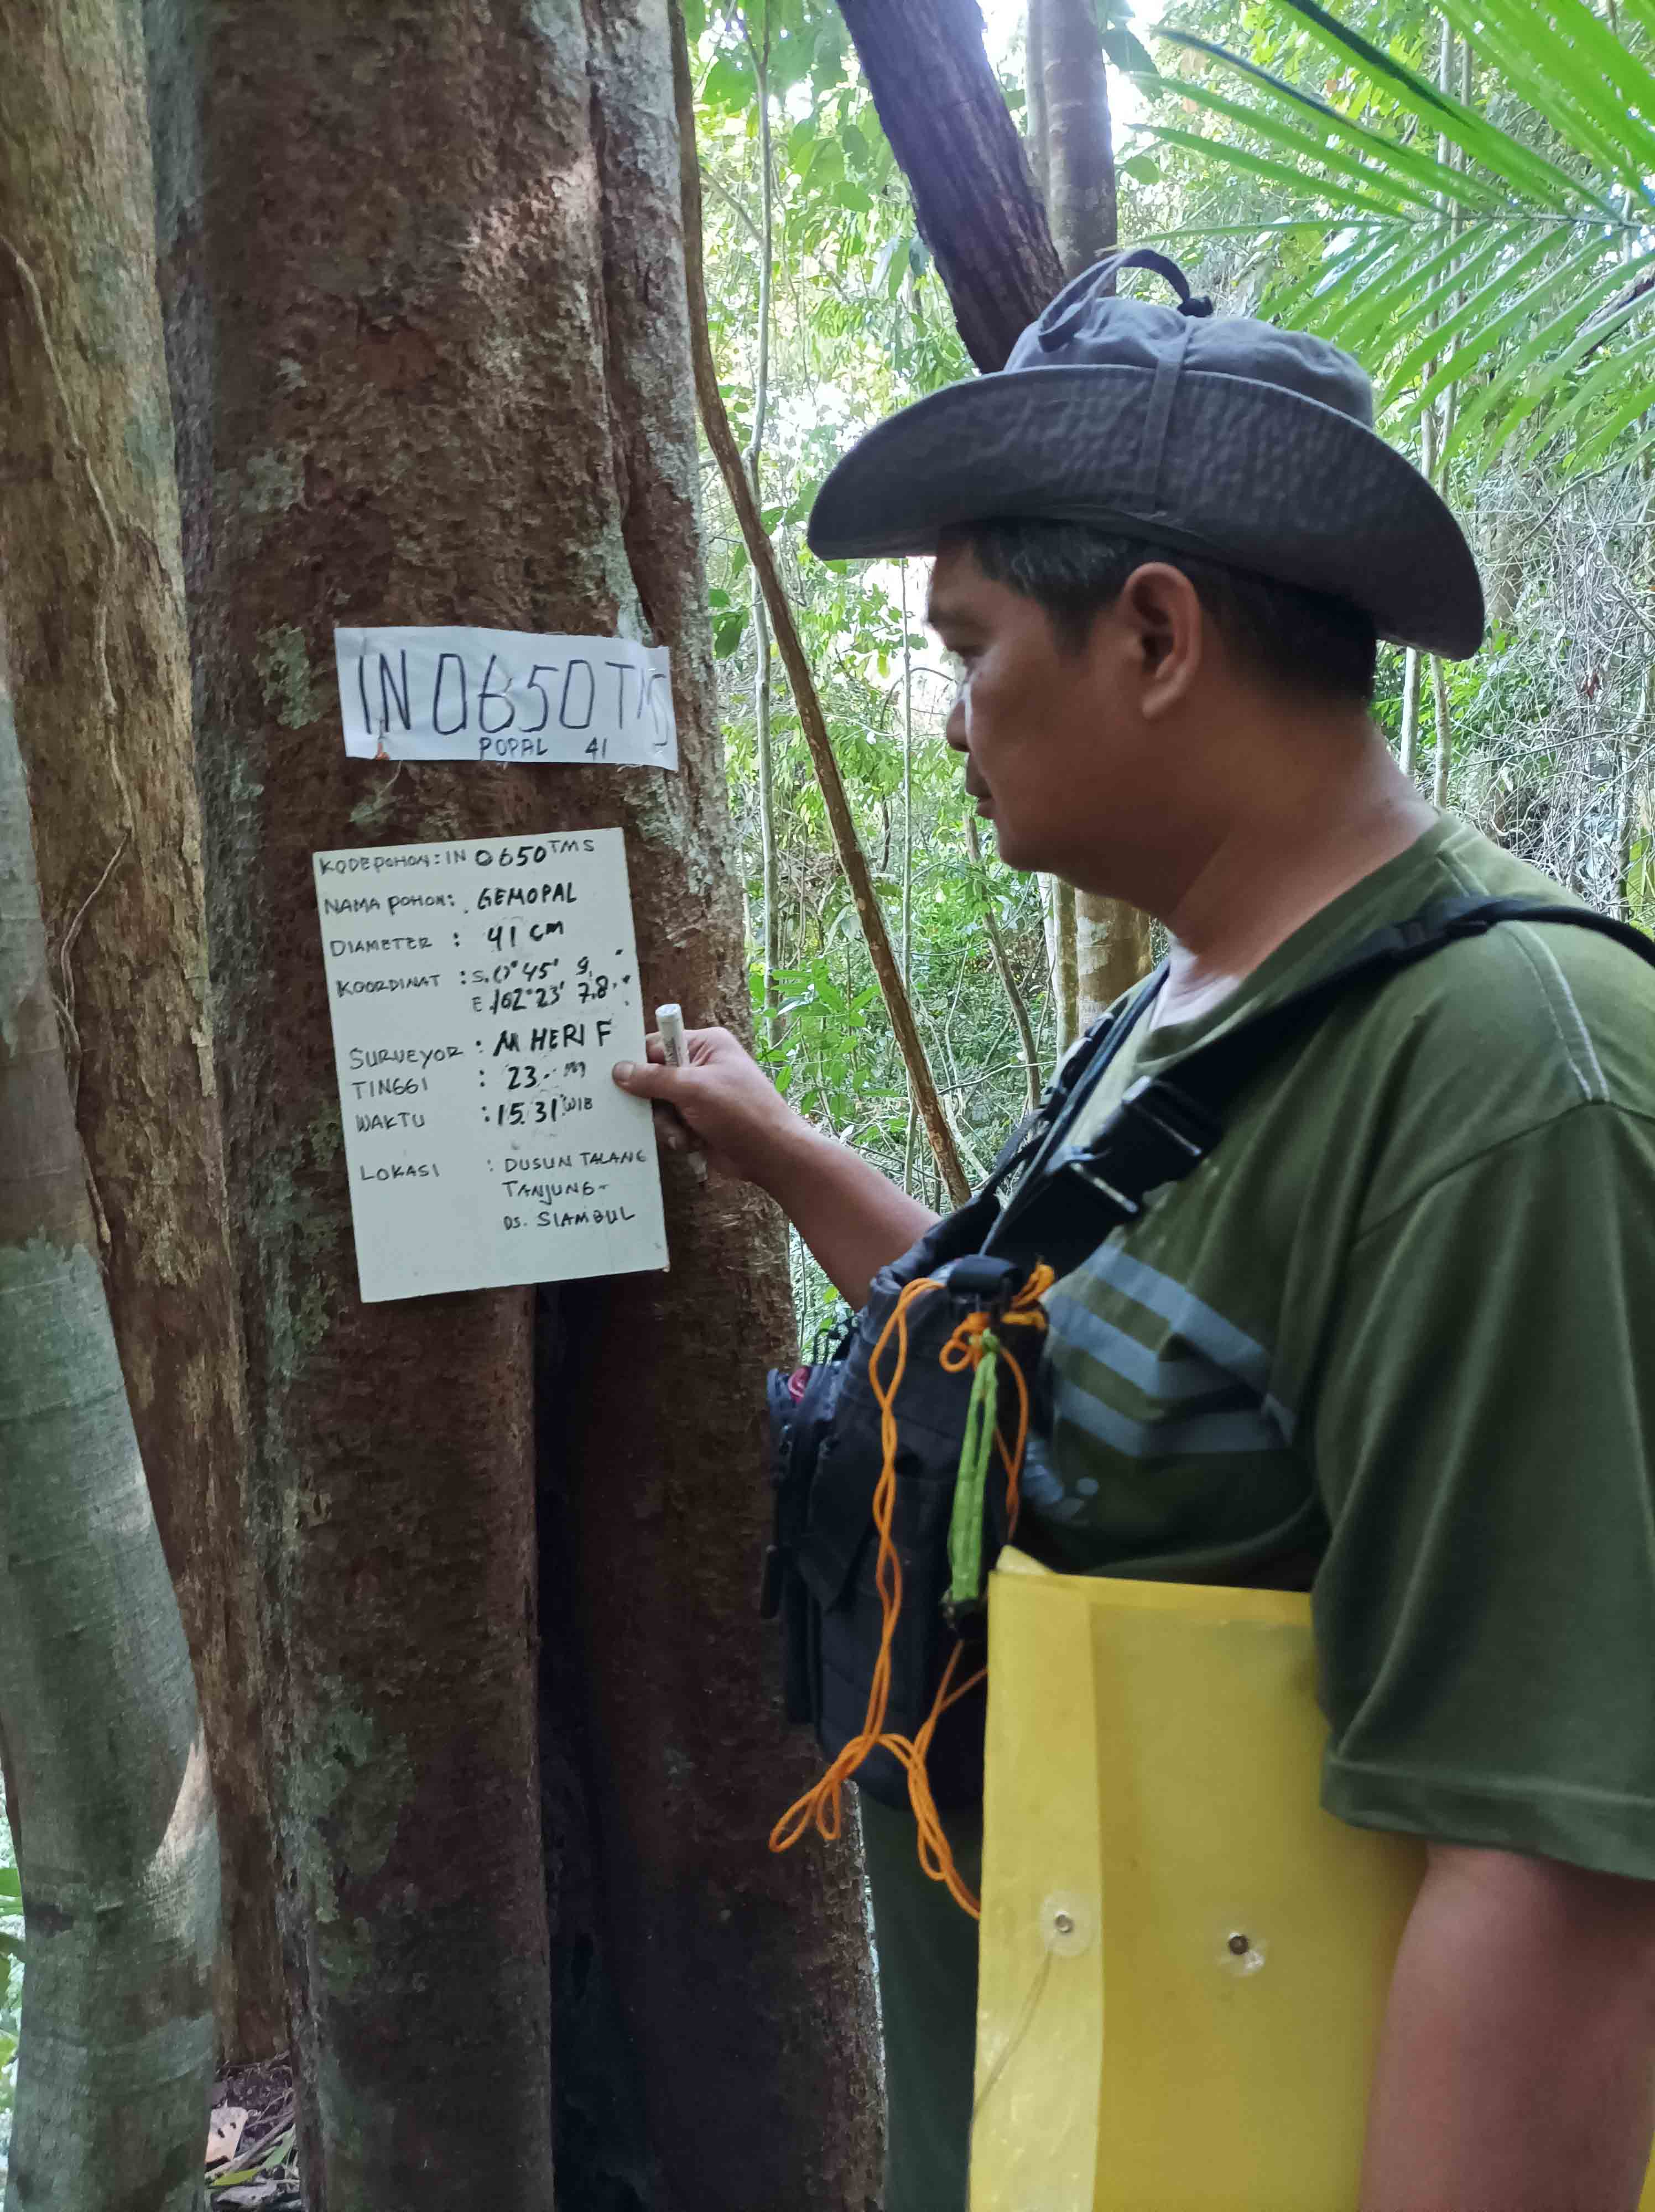 IN 0650 TMS
POPAL 41
KODE POHON : IN 0650 TMS
NAMA POHON : GEMOPAL
DIAMETER : 41 CM
KOORDINAT : S. 0° 45' 9,"
E. 102° 23' 7.8."
SURVEYOR : M HERI F
TINGGI : 23 M
WAKTU : 15.31 WIB
LOKASI : DUSUN TALANG
TANJUNG-
DS. SIAMBUL